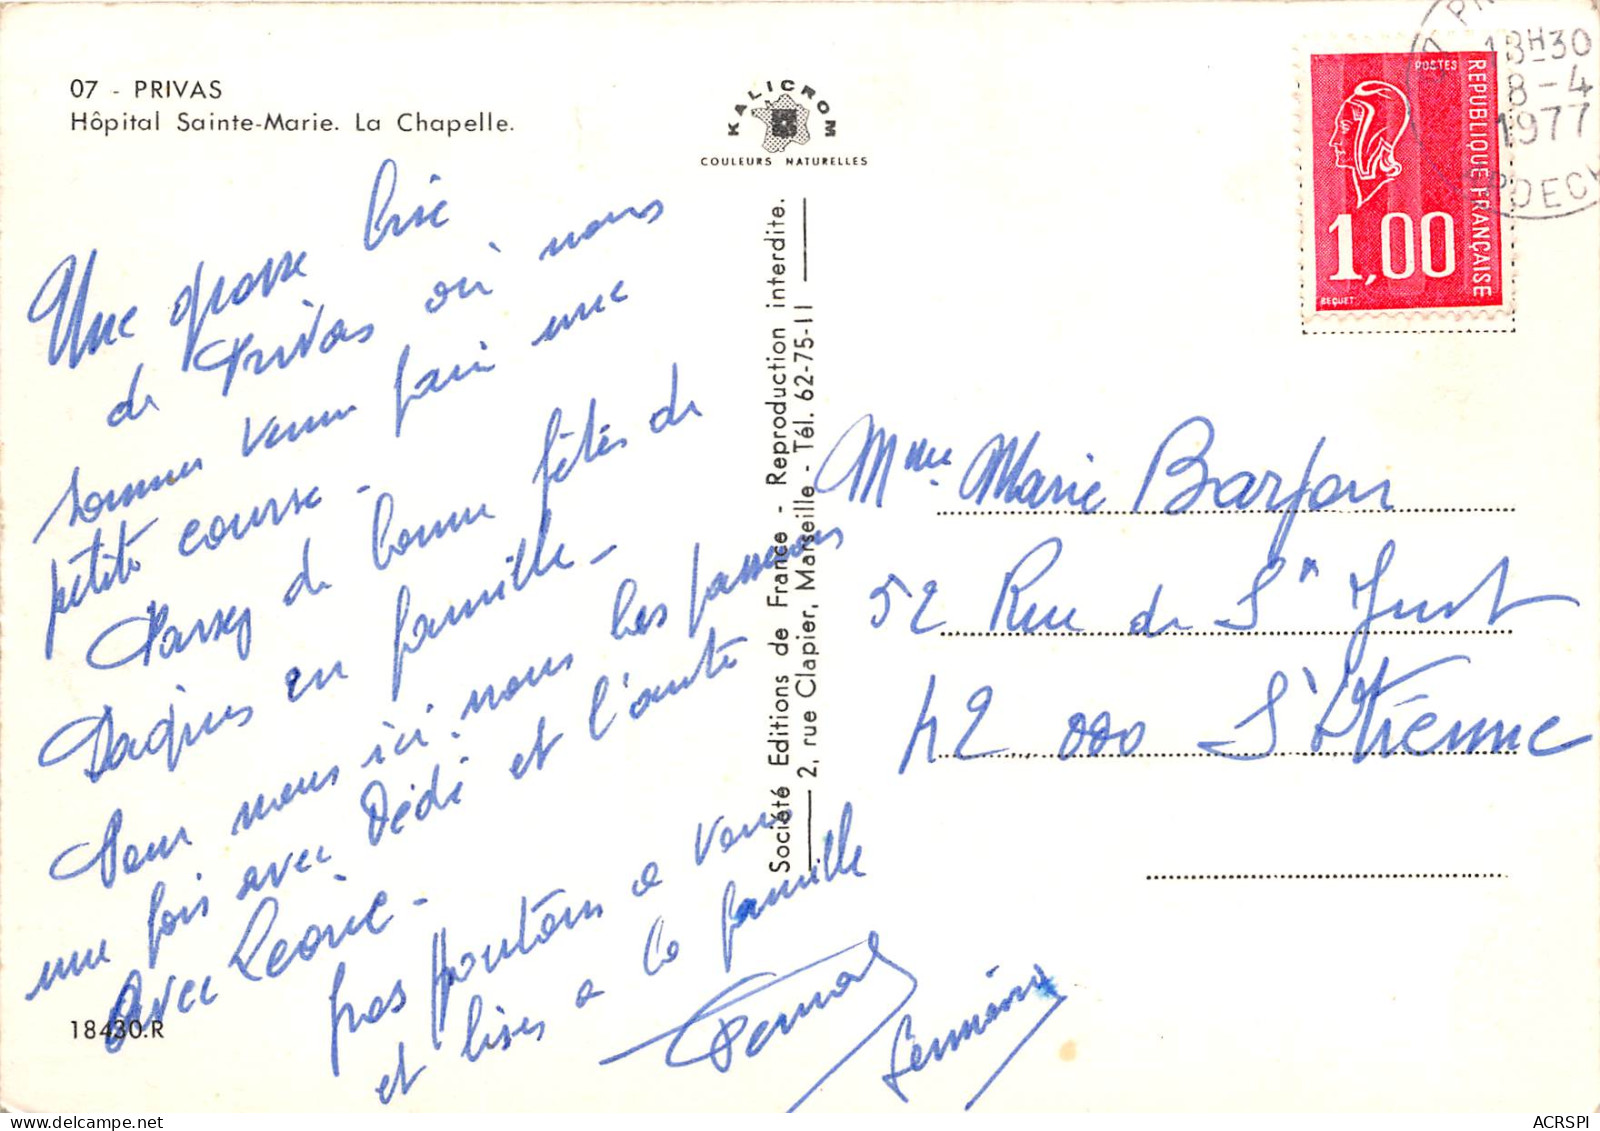 07 - PRIVAS
Hôpital Sainte-Marie. La Chapelle.
KALICROM
COULEURS NATURELLES
Une grosse bise
de Privas où nous
sommes venu faire une
petite course -
Passez de bonne fêtes de
Paques en famille -
Pour nous ici, nous les passerons
une fois avec Dédé et l'autre
avec Léonie -
pas a vous
et bises a la famille
18430.R
Société Editions de France - Reproduction interdite.
2, rue Clapier, Marseille - Tél. 62-75-11
POSTES
REPUBLIQUE FRANÇAISE
1,00
BEQUET
18H30
8-4
1977
Mme Marie Barjon
52 Rue de St Just
42 000 St Etienne
ACRSPI